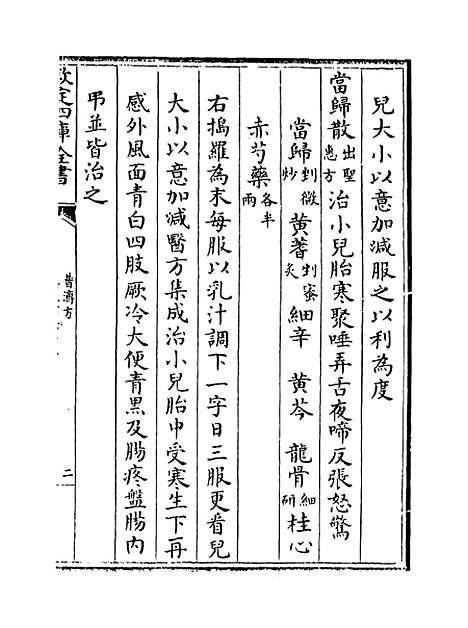 兒大小以意加減服之以利為度
當歸散出聖惠方治小兒胎寒聚唾弄舌夜啼反張怒驚
當歸剉微炒黃蓍剉蜜炙細辛　黃芩　龍骨細研桂心
赤芍藥各半兩
右搗羅為末每服以乳汁調下一字日三服更看兒
大小以意加減醫方集成治小兒胎中受寒生下再
感外風面青白四肢厥冷大便青黑及腸疼盤腸內
弔並皆治之
欽定四庫全書
普濟方
二